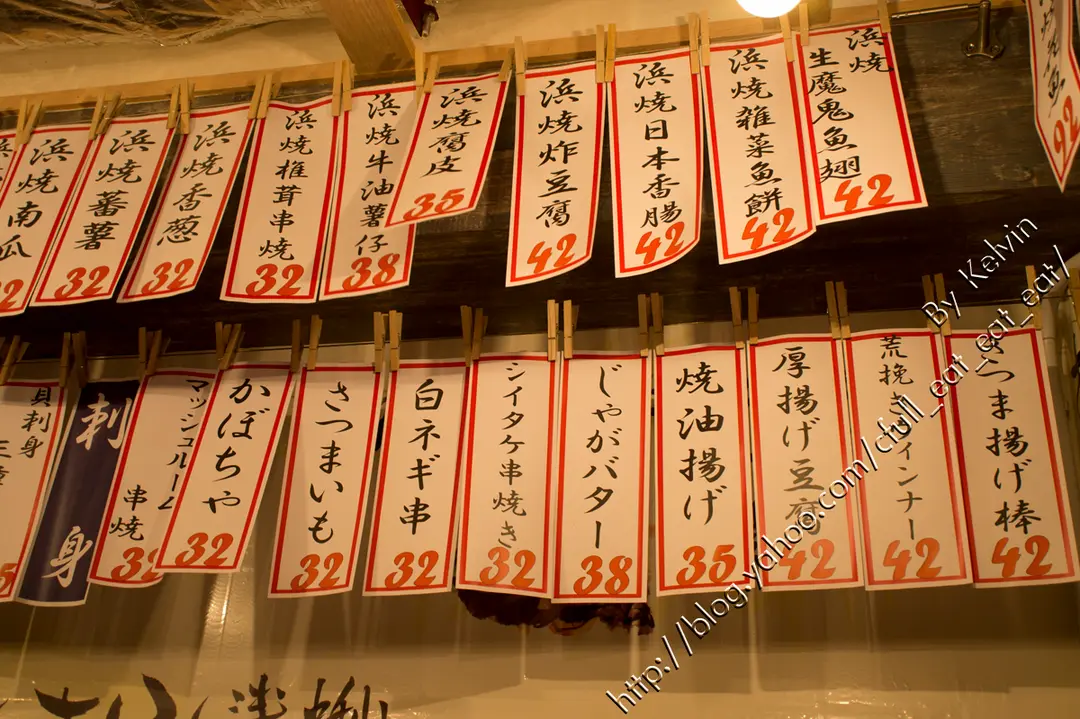 浜焼南瓜
浜焼蕃薯
32
浜焼香葱
32
浜焼椎茸串焼
32
浜焼牛油薯仔
38
浜焼腐皮
35
浜焼炸豆腐
42
浜焼日本香腸
42
浜焼雑菜魚餅
42
浜焼
生魔鬼魚翅
42
92
貝刺身
刺身
マッシュルーム
串焼
32
かぼちゃ
32
さつまいも
32
白ネギ串
32
シイタケ串焼き
32
じゃがバター
38
焼油揚げ
35
厚揚げ豆腐
42
荒挽きウインナー
42
さつま揚げ棒
42
By Kelvin
http://blog.yahoo.com/cfull_eat_eat_eat/